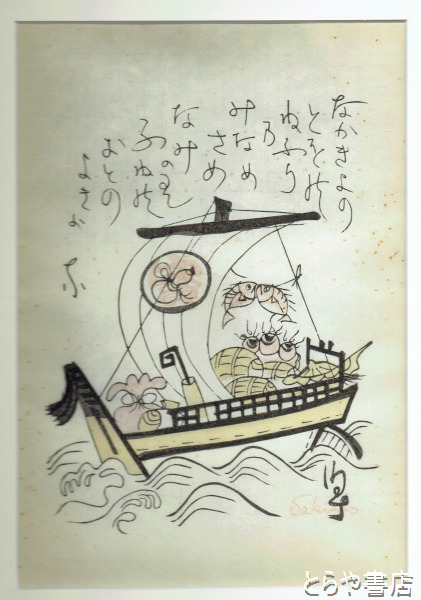 なかきよの
とをの
ねふり
乃
みなめ
さめ
なみのり
ふねの
おとの
よきかな
とらや書店